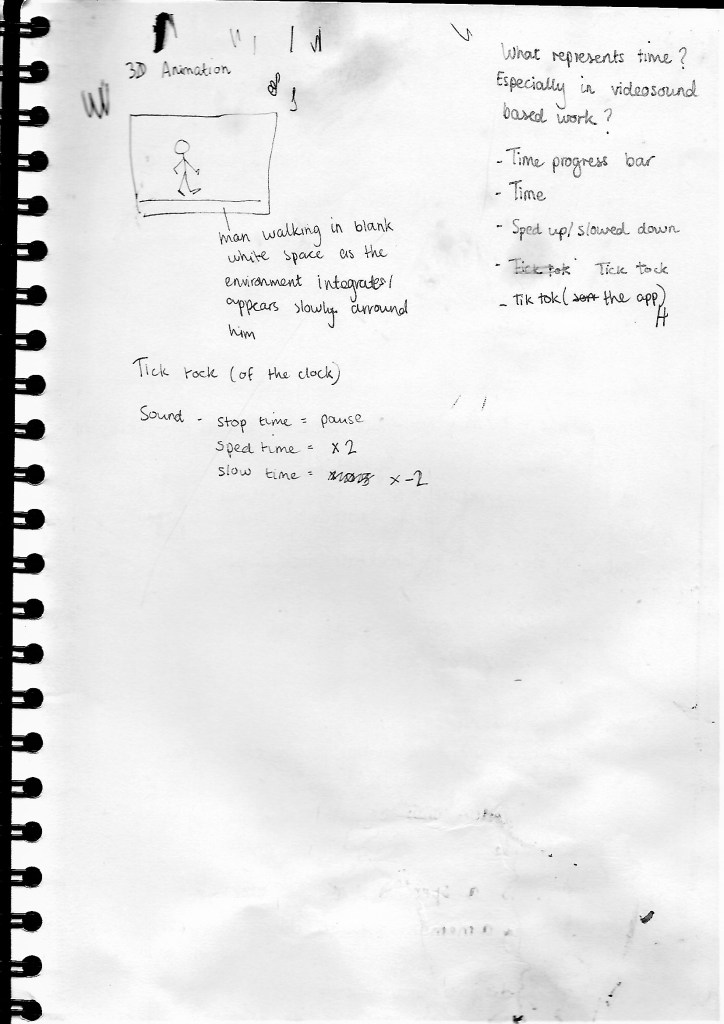 3D Animation
man walking in blank
white space as the
environment integrates/
appears slowly arround
him
Tick tock (of the clock)
Sound - stop time = pause
sped time = x 2
slow time = x -2
What represents time?
Especially in videosound
based work?
- Time progress bar
- Time
- Sped up/slowed down
- Tick tok Tick tock
- Tik tok ( the app)